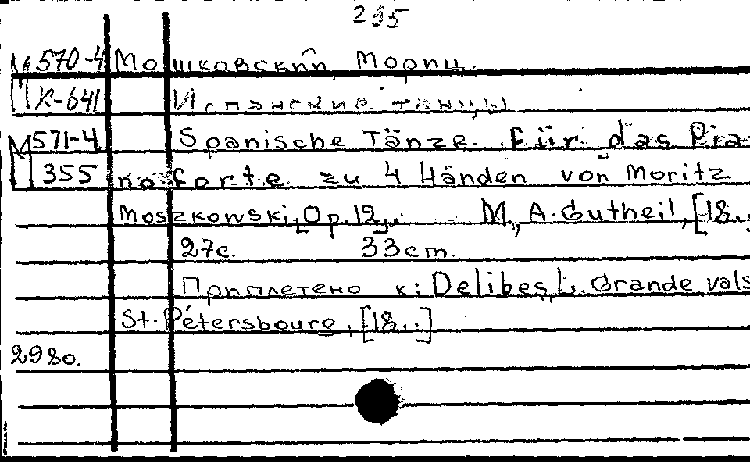 295
М 570-4 Мошковский Мориц.
П К-641 Испанские танцы
М 571-4 Spanische Tänze. Für das Pia-
П 355 noforte zu 4 Händen von Moritz
Moszkowski, Op. 12,, М., A. Gutheil, [18..
27с. 33cm.
Приплетено к: Delibes, L. Grande vals
St.-Pétersbourg, [18..]
2980.